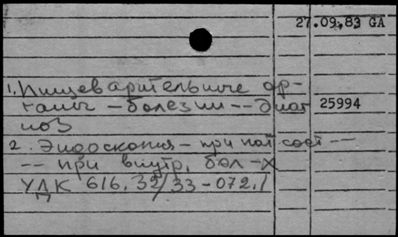 27.09.83 GA
1. Пищеварительные ор-
ганы - болезни -- Диаг 25994
ноз
2. Эндоскопия - при пат сост --
-- при внутр. бол-х
УДК 616.39/33-072.1